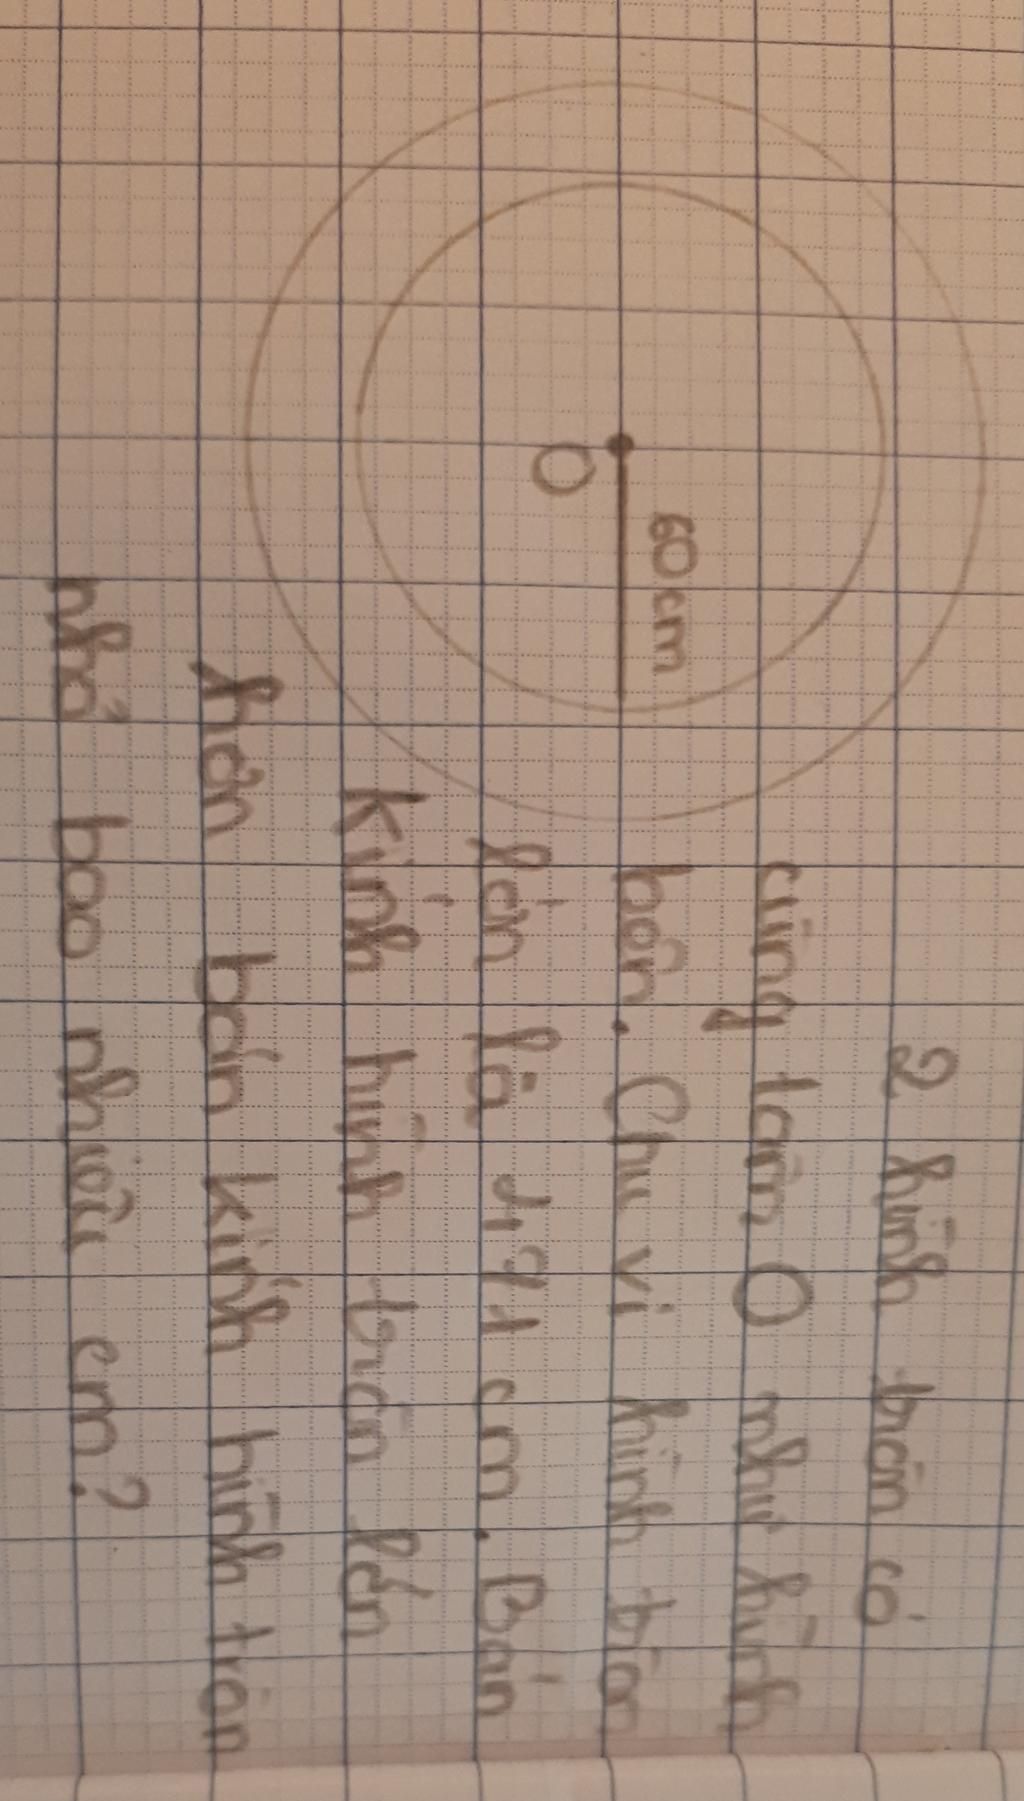 60cm
O
2 hình tròn có
cùng tâm O như hình
bên. Chu vi hình tròn
lớn là 471 cm. Bán
kính hình tròn lớn
hơn bán kính hình tròn
nhỏ bao nhiêu cm?